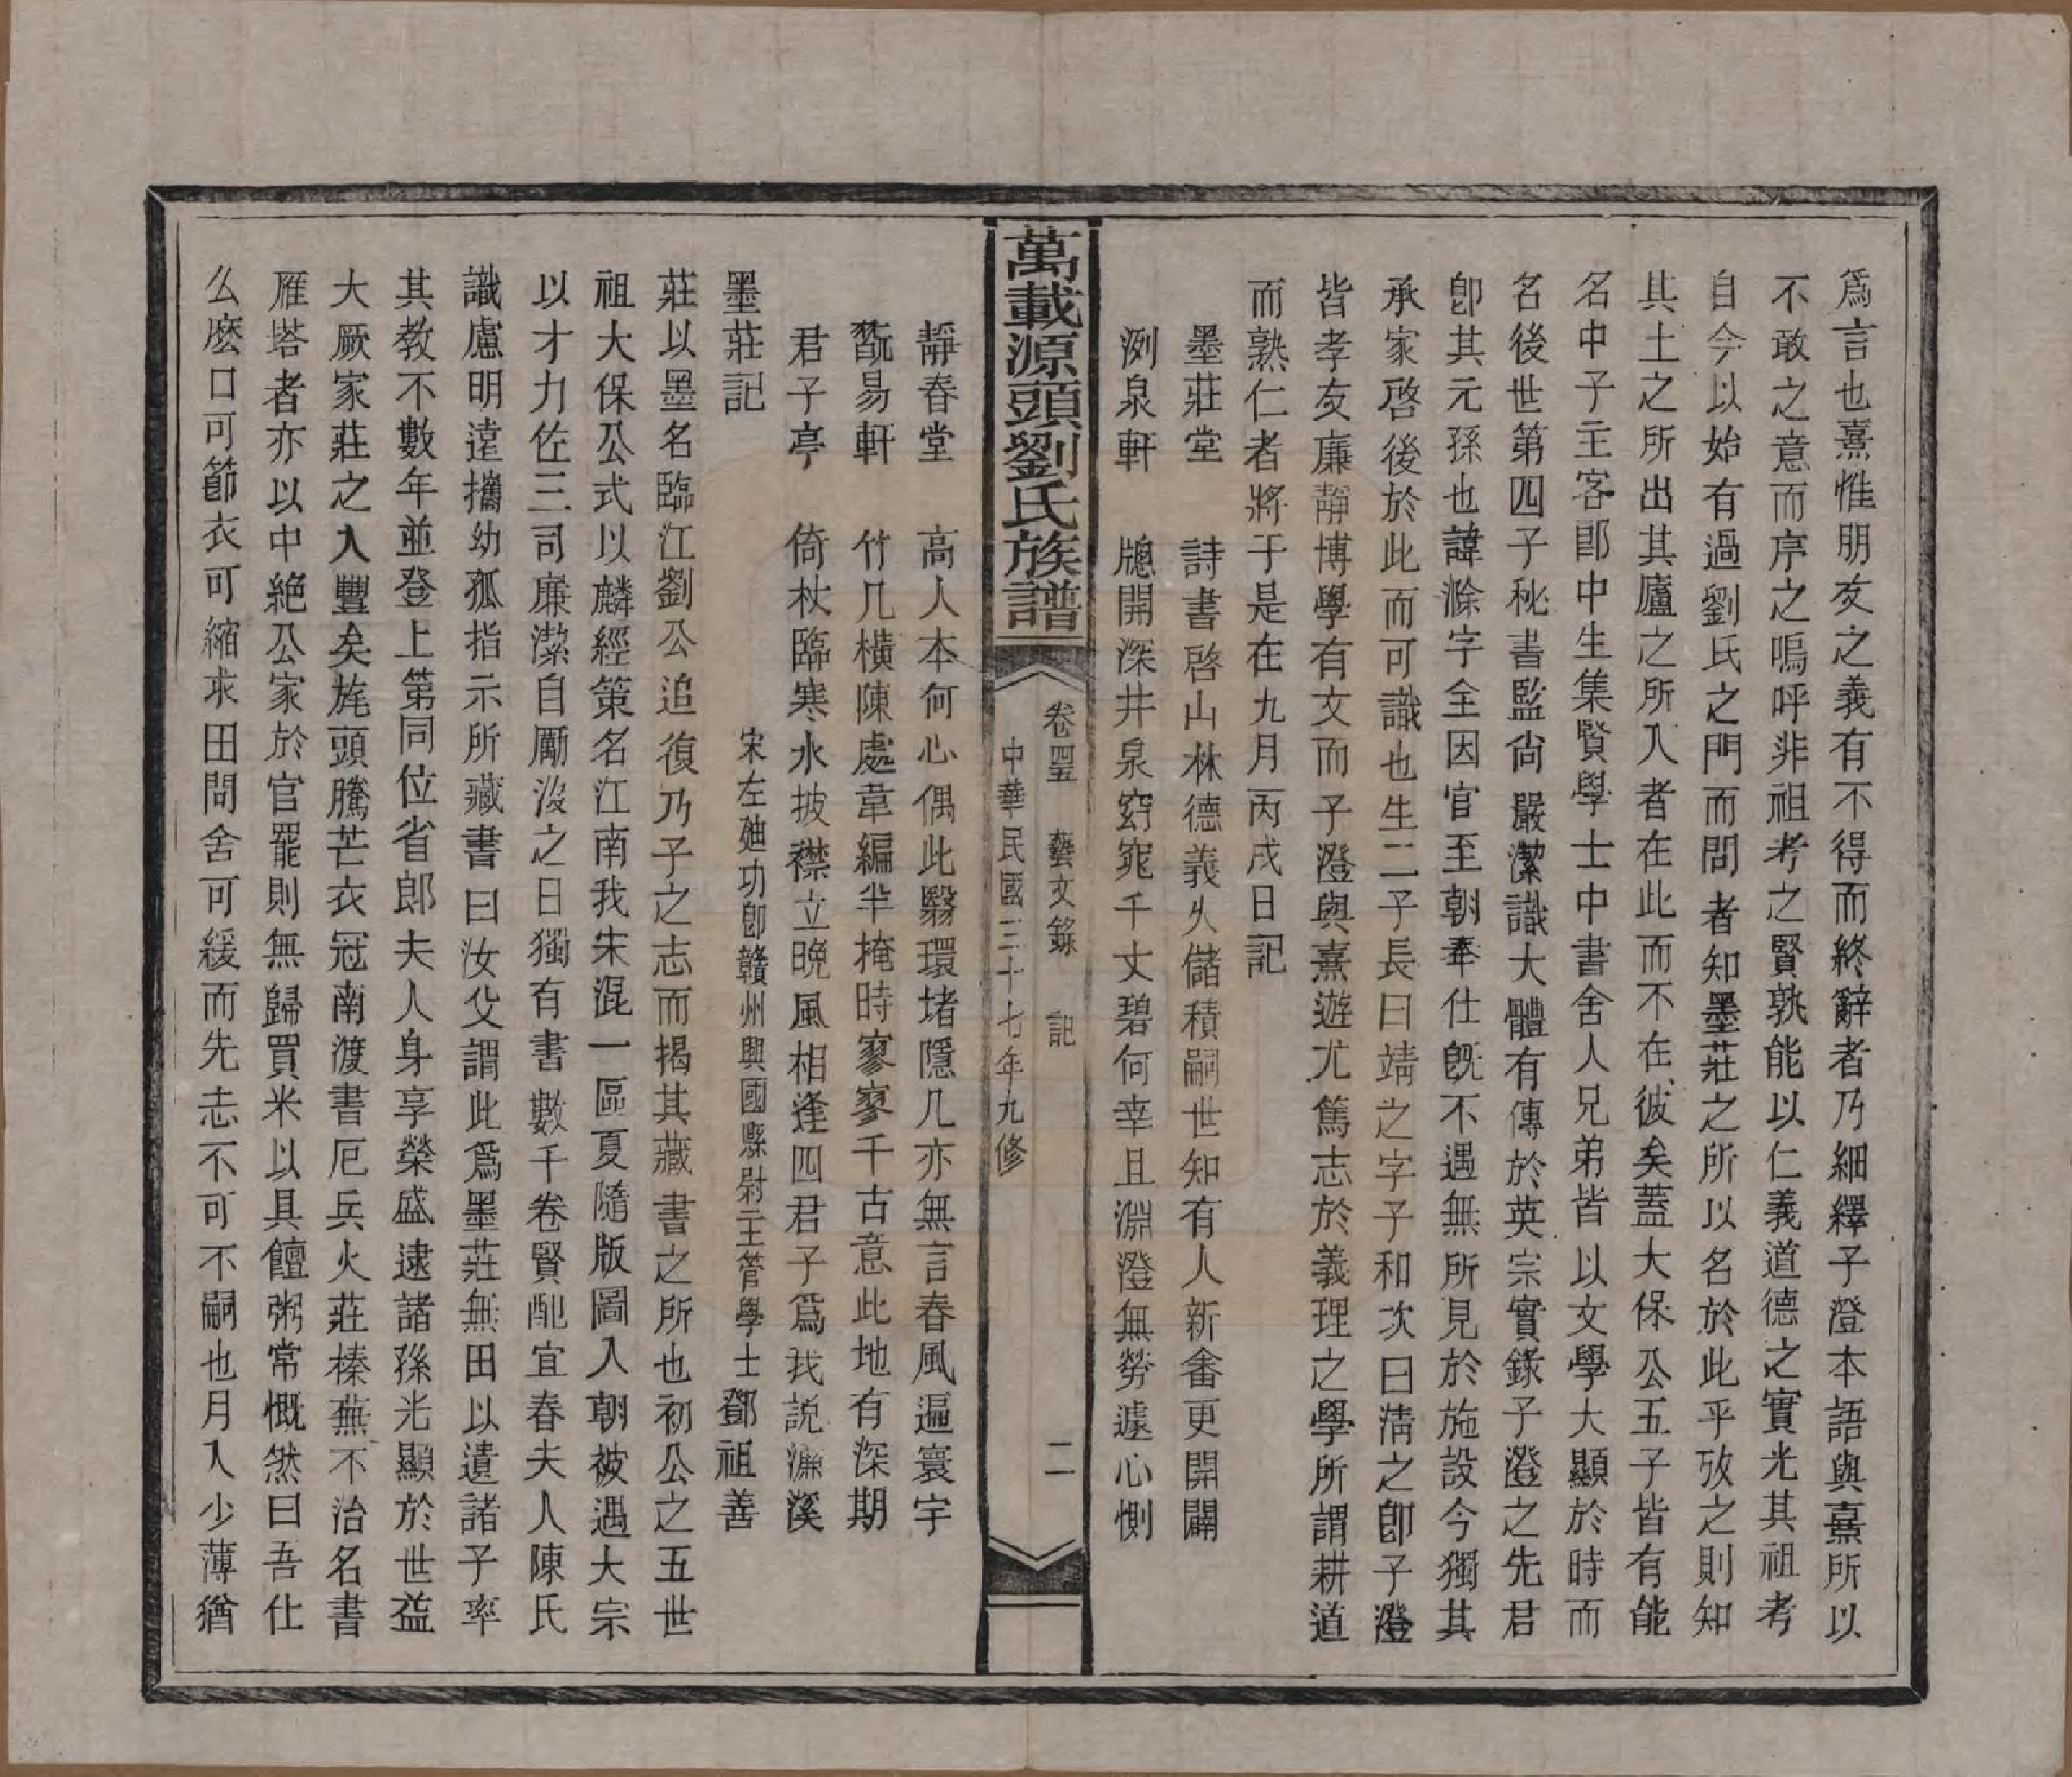 爲言也熹惟朋友之義有不得而終辭者乃細繹子澄本語與熹所以
不敢之意而序之嗚呼非祖考之賢孰能以仁義道德之實光其祖考
自今以始有過劉氏之門而問者知墨莊之所以名於此乎攷之則知
其土之所出其廬之所入者在此而不在彼矣蓋大保公五子皆有能
名中子主客郎中生集賢學士中書舍人兄弟皆以文學大顯於時而
名後世第四子秘書監尙嚴潔識大體有傳於英宗實錄子澄之先君
卽其元孫也諱滁字全因官至朝奉仕旣不遇無所見於施設今獨其
承家啓後於此而可識也生二子長曰靖之字子和次曰清之卽子澄
皆孝友廉靜博學有文而子澄與熹遊尤篤志於義理之學所謂耕道
而熟仁者將于是在九月丙戌日記
墨莊堂　詩書啓山林德義久儲積嗣世知有人新畬更開闢
洌泉軒　牕開深井泉窈窕千丈碧何幸且淵澄無勞遽心惻
萬載源頭劉氏族譜
卷四　藝文錄　記　二
中華民國三十七年九修
靜春堂　高人本何心偶此翳環堵隱几亦無言春風遍寰宇
翫易軒　竹几橫陳處韋編半掩時寥寥千古意此地有深期
君子亭　倚杖臨寒水披襟立晚風相逢四君子爲我説濂溪
墨莊記　宋左廸功卽贛州興國縣尉主管學士鄧祖善
莊以墨名臨江劉公追復乃子之志而揭其藏書之所也初公之五世
祖大保公式以麟經策名江南我宋混一區夏隨版圖入朝被遇大宗
以才力佐三司廉潔自勵沒之日獨有書數千卷賢配宜春夫人陳氏
識慮明遠攜幼孤指示所藏書曰汝父謂此爲墨莊無田以遺諸子率
其教不數年並登上第同位省郎夫人身享榮盛逮諸孫光顯於世益
大厥家莊之入豐矣旄頭騰芒衣冠南渡書厄兵火莊榛蕪不治名書
雁塔者亦以中絶公家於官罷則無歸買米以具饘粥常慨然曰吾仕
么麽口可節衣可縮求田問舍可緩而先志不可不嗣也月入少薄猶